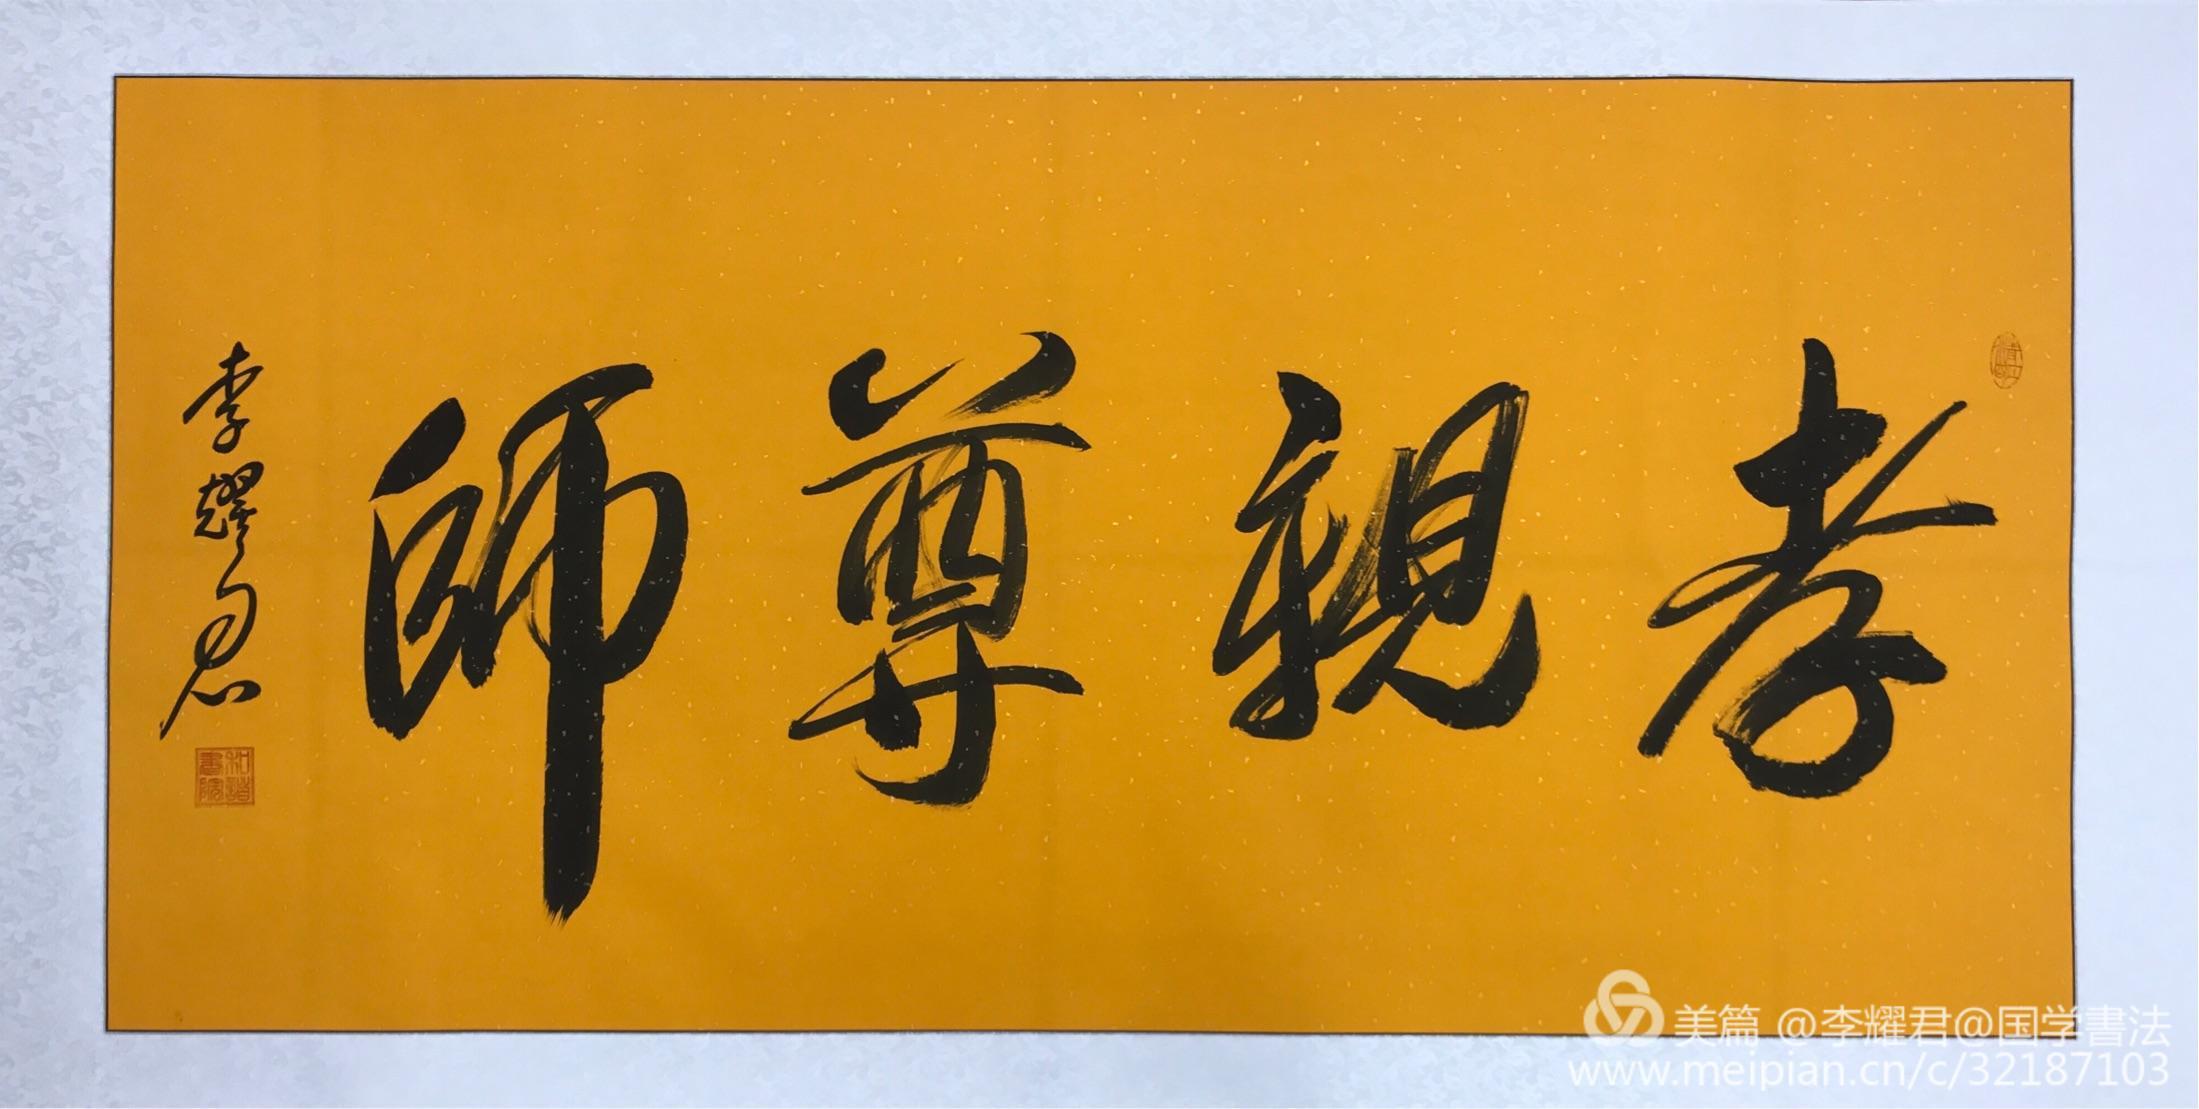 孝親尊師
李耀君
和諧書院
美篇 @李耀君@国学書法
www.meipian.cn/c/32187103